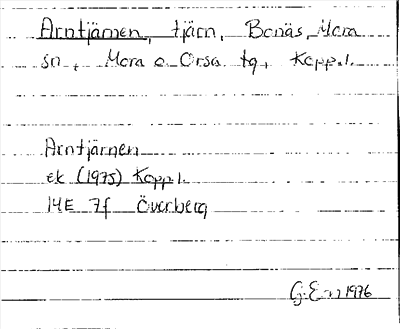 Arntjärnen, tjärn, Bonäs, Mora
sn, Mora o Orsa tg, Kopp.l.
Arntjärnen
ek (1975) Kopp l.
14E 7f Överberg
G. E-n 1976